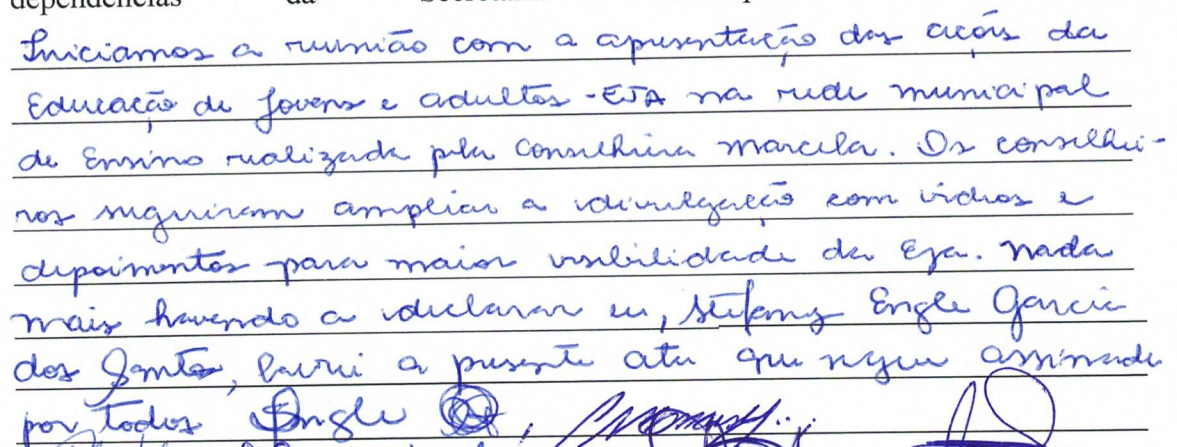 dependências da
Iniciamos a reunião com a apresentação das ações da
Educação de Jovens e adultos - EJA na rede municipal
de Ensino realizada pela Conselheira Marcela. Os conselhei-
ros sugeriram ampliar a divulgação com vídeos e
depoimentos para maior visibilidade da Eja. Nada
mais havendo a declarar eu, Stefany Engle Garcia
dos Santos, lavrei a presente ata que segue assinada
por todos Engle